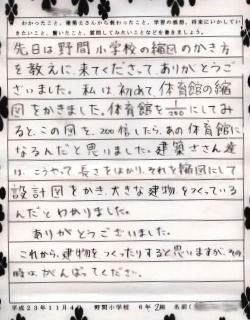 わかったこと、建築士さんから教わったこと、学習の感想、将来にいかしてい
きたいこと、驚いたこと、質問してみたいことなどを書きましょう。
先日は野間小学校の縮図のかき方
を教えに来てくださって、ありがとうご
ざいました。私は、初めて、体育館の縮
図をかきました。体育館を1/200にしてみ
ると、この図を、200倍したら、あの体育館に
なるんだと思いました。建築士さん達
は、こうやって長さをはかり、それを縮図にして
設計図をかき、大きな建物をつくっている
んだとわかりました。
ありがとうございました。
これから、建物をつくったりすると思いますが、その
時は、がんばってください。
平成23年11月4日 野間小学校 6年2組 名前(